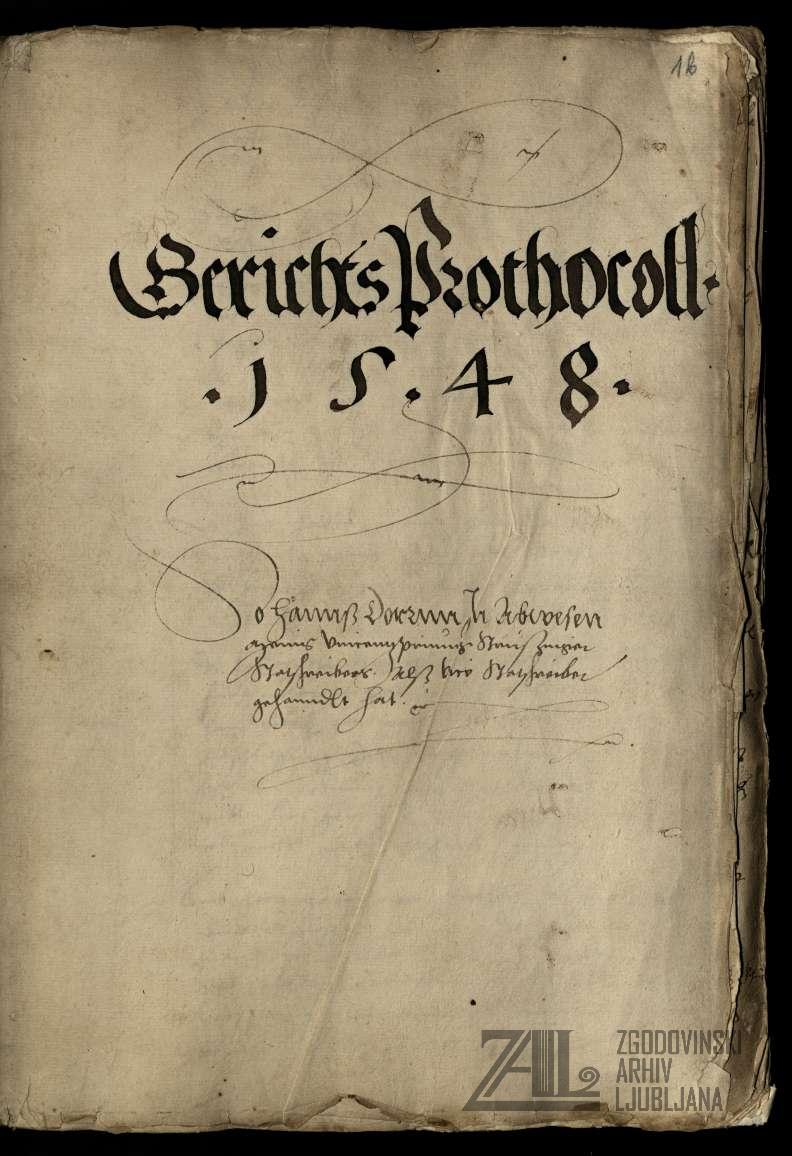 16
Gerichts Prothocoll.
.15.48.
Johannß In Abwesen
Statschreibers alß vice Statschreiber
gehanndlt hat.
ZAL
ZGODOVINSKI
ARHIV
LJUBLJANA